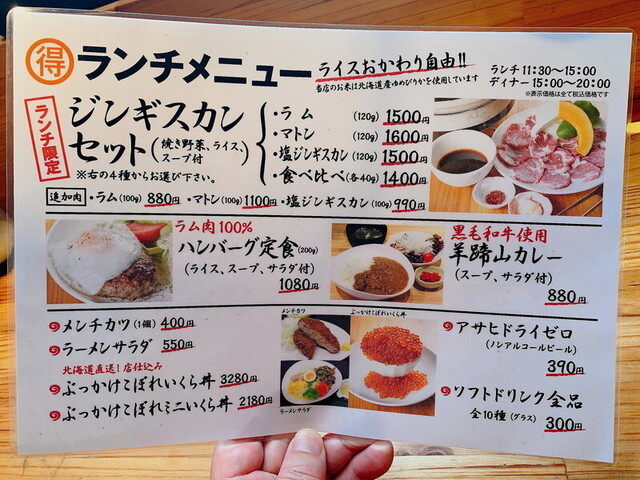 得 ランチメニュー
ライスおかわり自由!!
当店のお米は北海道産ゆめぴりかを使用しています
ランチ 11:30〜15:00
ディナー 15:00〜20:00
※表示価格は全て税込価格です
ランチ限定
ジンギスカン
セット(焼き野菜、ライス、スープ付)
※右の4種からお選び下さい。
・ラム (120g) 1500円
・マトン (120g) 1600円
・塩ジンギスカン (120g) 1500円
・食べ比べ (各40g) 1400円
追加肉 ・ラム(100g) 880円 ・マトン(100g) 1100円 ・塩ジンギスカン(100g) 990円
ラム肉100%
ハンバーグ定食(200g)
(ライス、スープ、サラダ付)
1080円
黒毛和牛使用
羊蹄山カレー
(スープ、サラダ付)
880円
メンチカツ(1個) 400円
ラーメンサラダ 550円
北海道直送!店仕込み
ぶっかけこぼれいくら丼 3280円
ぶっかけこぼれミニいくら丼 2180円
メンチカツ
ぶっかけこぼれいくら丼
ラーメンサラダ
アサヒドライゼロ
(ノンアルコールビール)
390円
ソフトドリンク全品
全10種(グラス) 300円